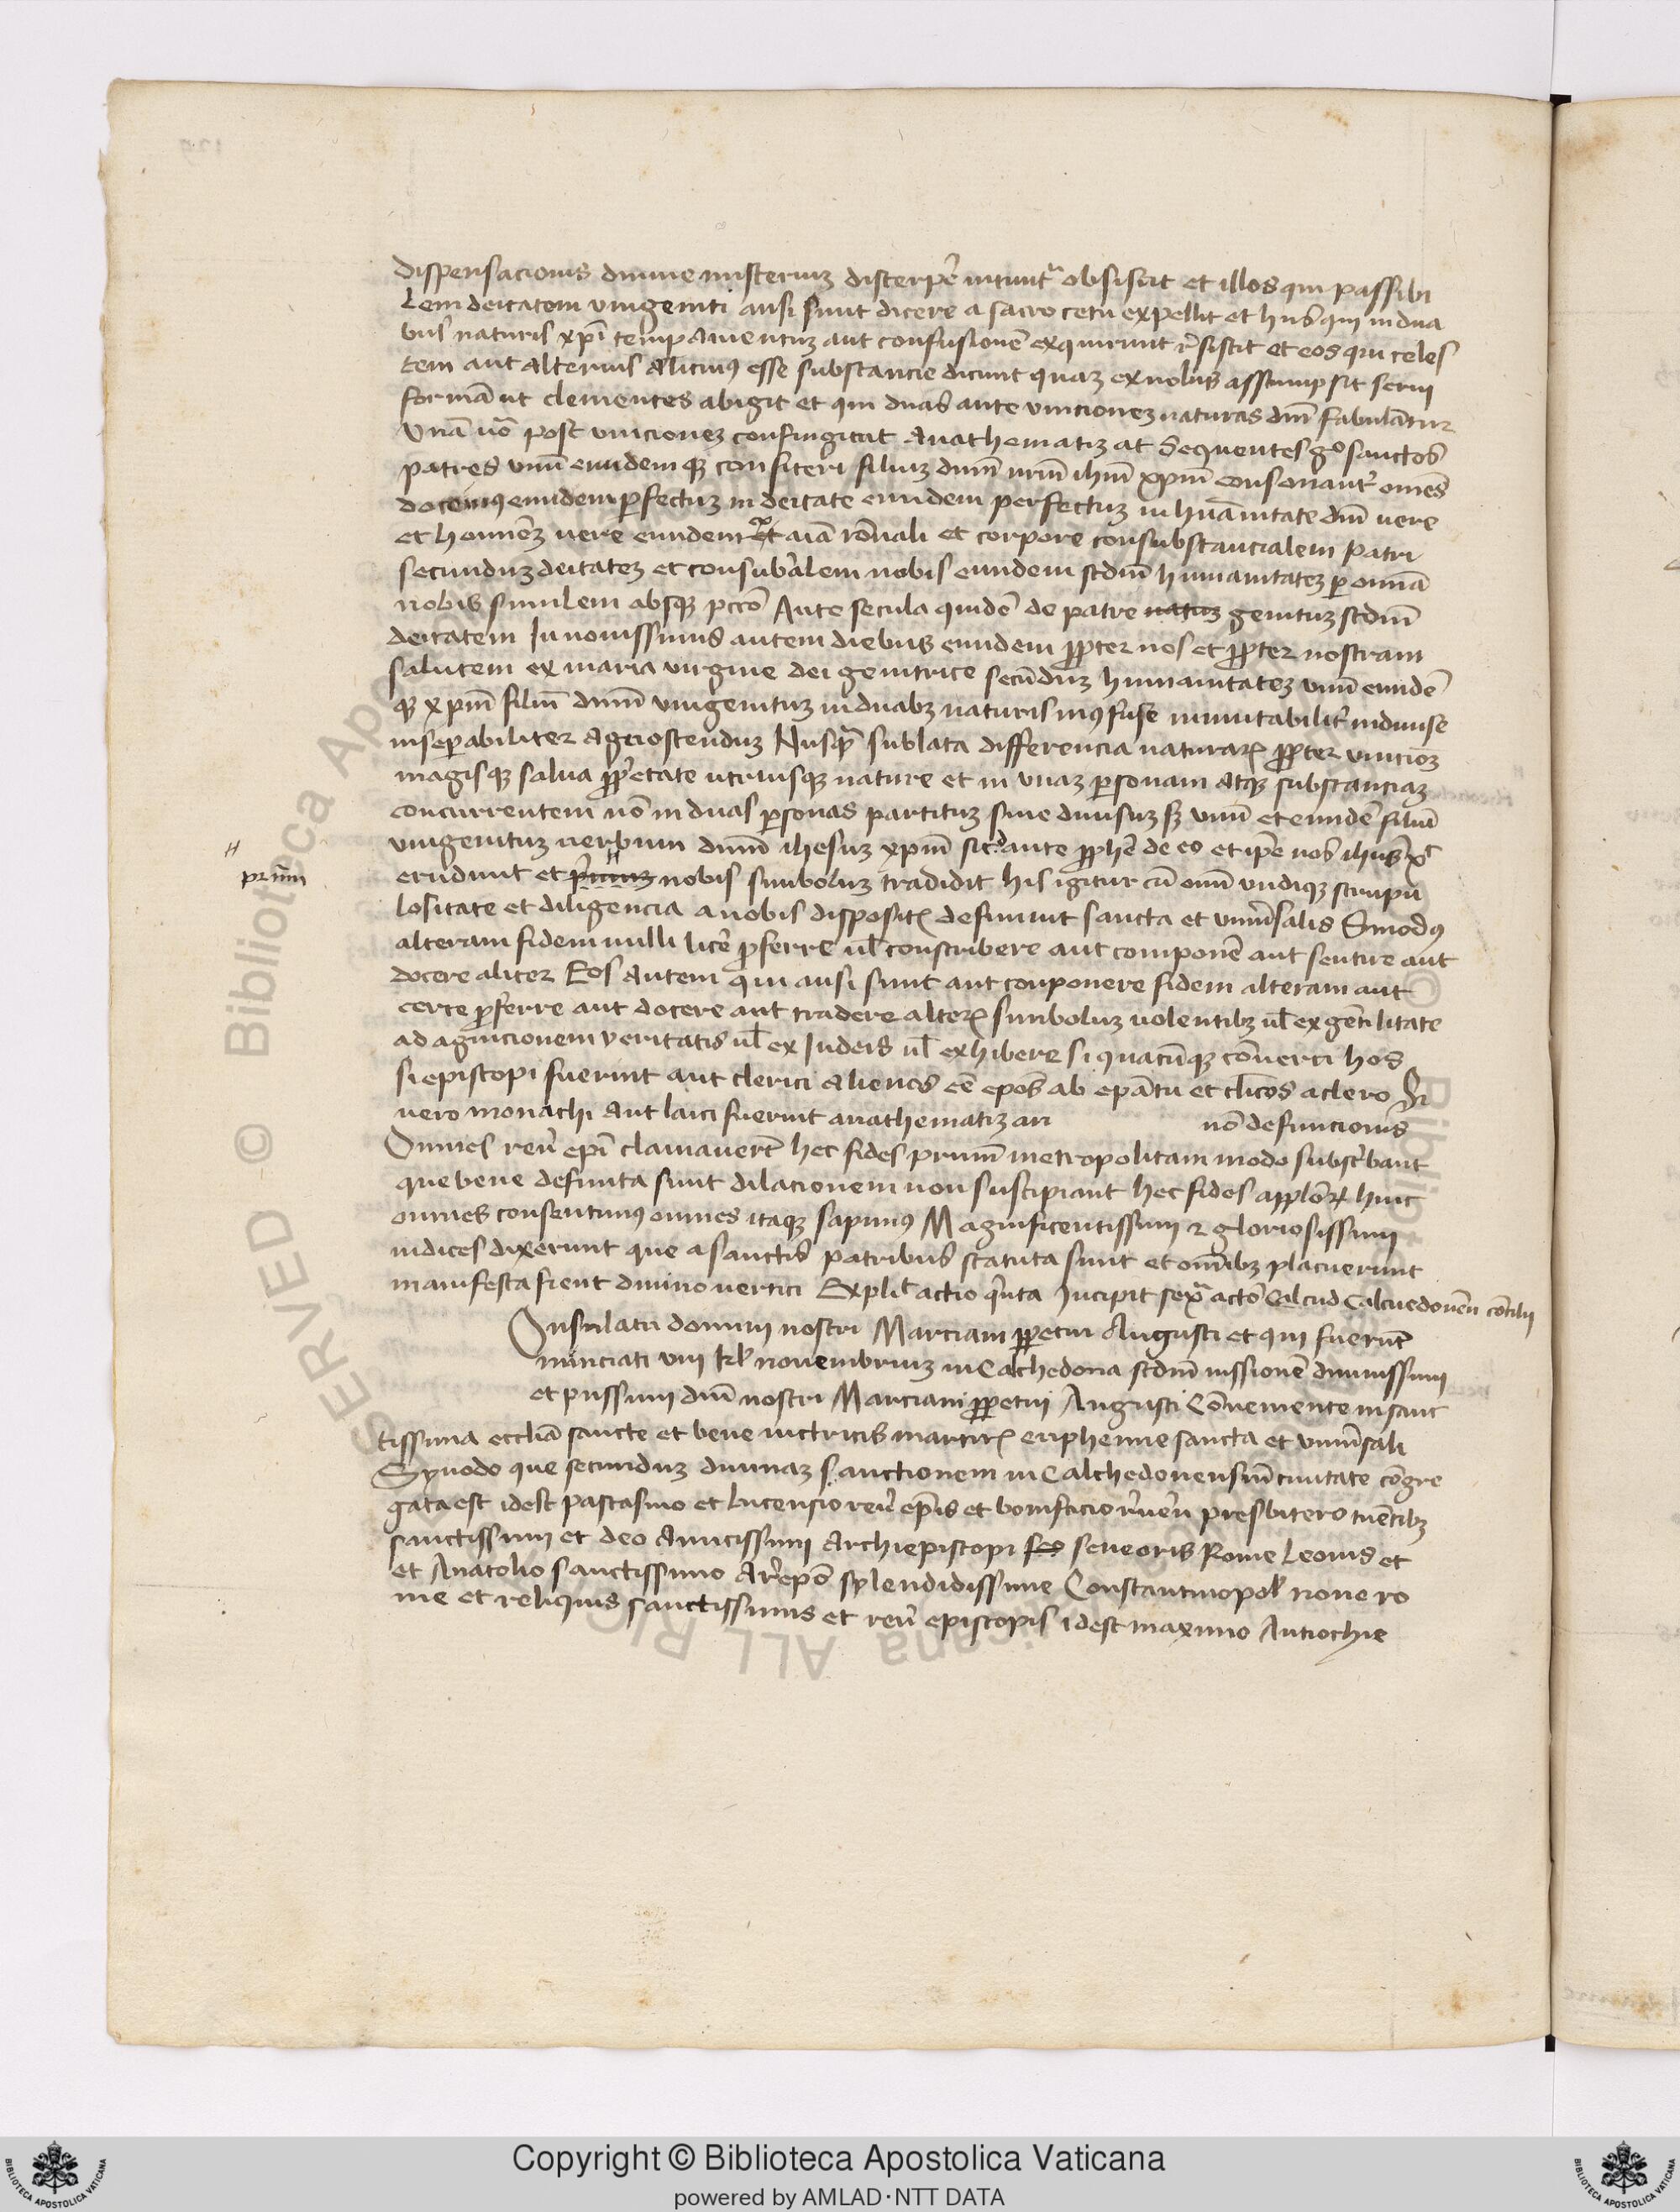 dispensacionis diuine misterium discerpe nitunt obsistit et illos qui passibi
lem deitatem vnigeniti ausi sunt dicere a sacro cetu expellit et hiis qui in dua
bus naturis xpi temperamentum aut confusionē exquirunt resistit et eos qui celes
tem aut alterius alicuius esse substancie dicunt quam ex nobis assumpsit serui
formā ut dementes abigit et qui duas ante vnicionem naturas dnī fabulātur
Vnā uō post vnicionem confingūt Anathematizat Sequentes gō sanctos
patres vnū eundemque confiteri filium dnm nrm ihm xpm consonant omēs
docemus eundem perfectum in deitate eundem perfectum in huanitate dm uere
et hominem uere eundem ex aīa rōnali et corpore consubstancialem patri
secundum deitatem et consubalem nobis eundem scdm humanitatem per omnia
nobis similem absque pccō Ante secula quidē de patre natum genitum scdm
deitatem In nouissimis autem diebus eundem propter nos et propter nostram
salutem ex maria virgine dei genitrice secūdum humanitatem vnū eundē
que xpm filiū dnm vnigenitum in duabus naturis inconfuse inmutabilit indiuise
inseperabiliter agnoscendum Nusqm sublata differencia naturarum propter vnicionem
magisque salua proprietate utriusque nature et in vnam personam atque substanciam
concurrentem nō in duas personas partitum siue diuisum sed vnū et eundē filiū
vnigenitum uerbum dnm ihesum xpm sicut ante prophe de eo et ipe nos ihus xc
erudiuit et primum nobis simbolum tradidit his igitur cū omī vndique scrupu
primum
lositate et diligencia a nobis dispositis definiuit sancta et vniuersalis Sinodus
alteram fidem nulli licē proferre uł conscribere aut componē aut sentire aut
docere aliter Eos autem qui ausi sunt aut conponere fidem alteram aut
certe proferre aut docere aut tradere alterum simbolum uolentibus uł ex gētilitate
ad agnicionem veritatis uł ex Iudeis uł exhibere si quacūque cōuerti hos
si episcopi fuerint aut clerici alienos eē epōs ab epātu et clicos a clero Si
uero monachi aut laici fuerint anathematizari nō definicionis
Omnes reu epī clamauerūt hec fides primū metropolitani modo subscribant
que bene definita sunt dilacionem non suscipiant hec fides applorum huic
omnes consentimus omnes itaque sapimus Magnificentissimi et gloriosissimi
iudices dixerunt que a sanctis patribus statuta sunt et omībus placuerunt
manifesta fient diuino vertici Explit actio qinta Incipit sexta actō Calcud Calcuedonēn cōcilii
Onsulatu domini nostri Marciani perpetui Augusti et qui fuerūt
nunciati viii kl nouembrium in Calchedona scdm iussionē diuinissimi
et piissimi dni nostri Marciani perpetui Augusti Cōueniente in sanc
tissima eccliā sancte et bene uictricis martiris euphemie sancta et vniuersali
Synodo que secundum diuinam sanctionem in Calchedonensiū ciuitate cōgre
gata est idest pascasino et lucensio reu epis et bonifacio reueren presbitero tuētibus
sanctissimi et deo amicissimi Archiepiscopi seo seneoris Rome Leonis et
et Anatolio sanctissimo Arepō splendidissime Constantinopol noue ro
me et reliquis sanctissimis et reu episcopis idest maximo Antiochie
Copyright © Biblioteca Apostolica Vaticana
powered by AMLAD·NTT DATA